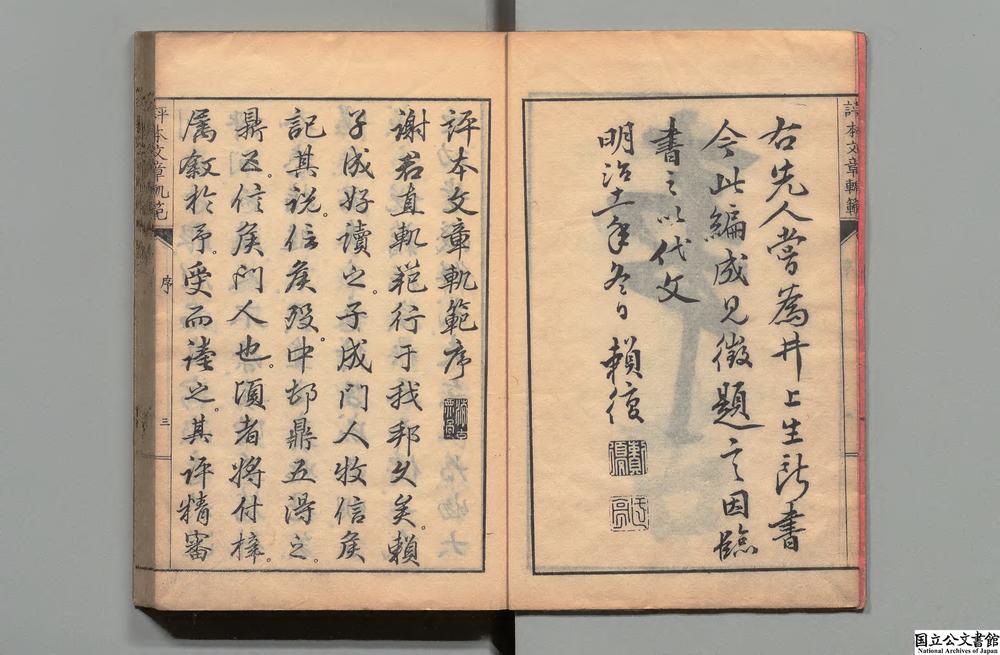 評本文章軌範
右先人嘗為井上生所書
今此編成見徵題言因臨
書之以代文
明治十一年冬日 賴復
評本文章軌範序
謝君直軌範行于我邦久矣。賴
子成好讀之。子成門人牧信矦
記其説。信矦歿。中邨鼎五得之。
鼎五。信矦門人也。頃者將付梓。
属敘於予。受而讀之。其評精審
評本文章軌範
序
三
国立公文書館
National Archives of Japan